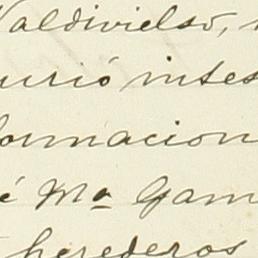 Valdivielso,
urió intes
formacion
é Mª Gam
herederos